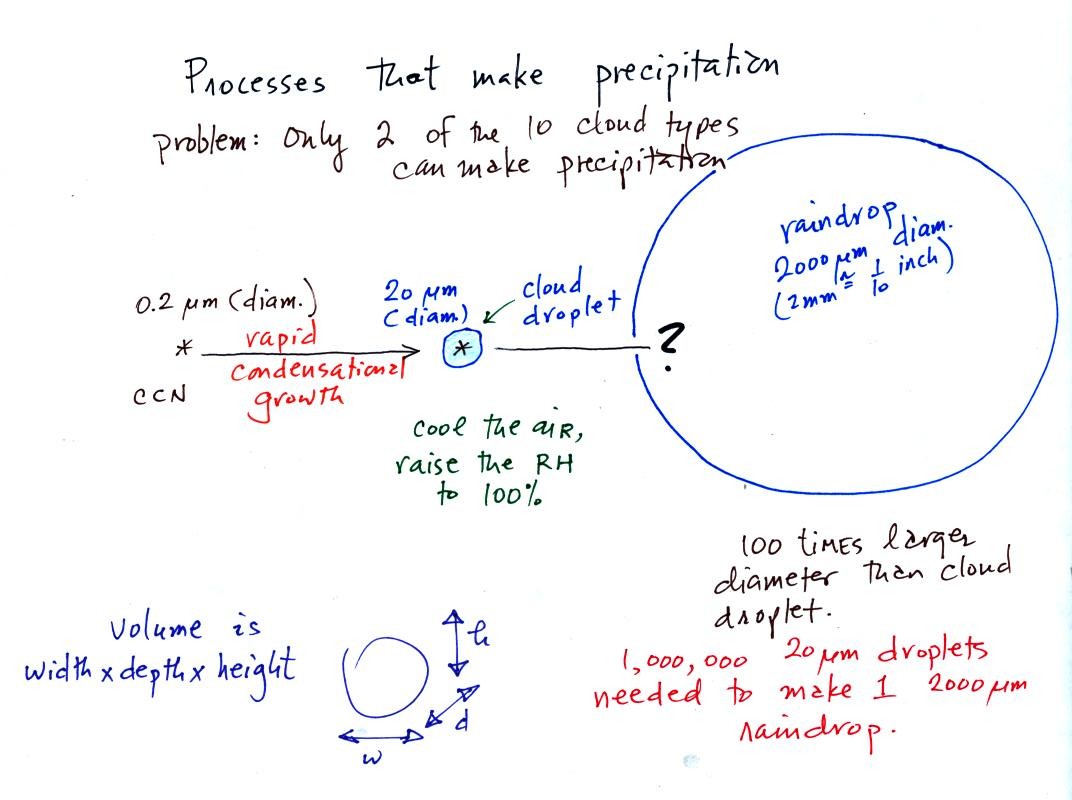 Processes that make precipitation
problem: Only 2 of the 10 cloud types
can make precipitation
raindrop
diam.
2000 μm
(2mm ≅ 1/10 inch)
0.2 μm (diam.)
20 μm
(diam.)
cloud
droplet
* rapid * ?
condensational
growth
CCN
cool the air,
raise the RH
to 100%
100 times larger
diameter than cloud
droplet.
Volume is
width x depth x height
h
d
w
1,000,000 20 μm droplets
needed to make 1 2000 μm
raindrop.